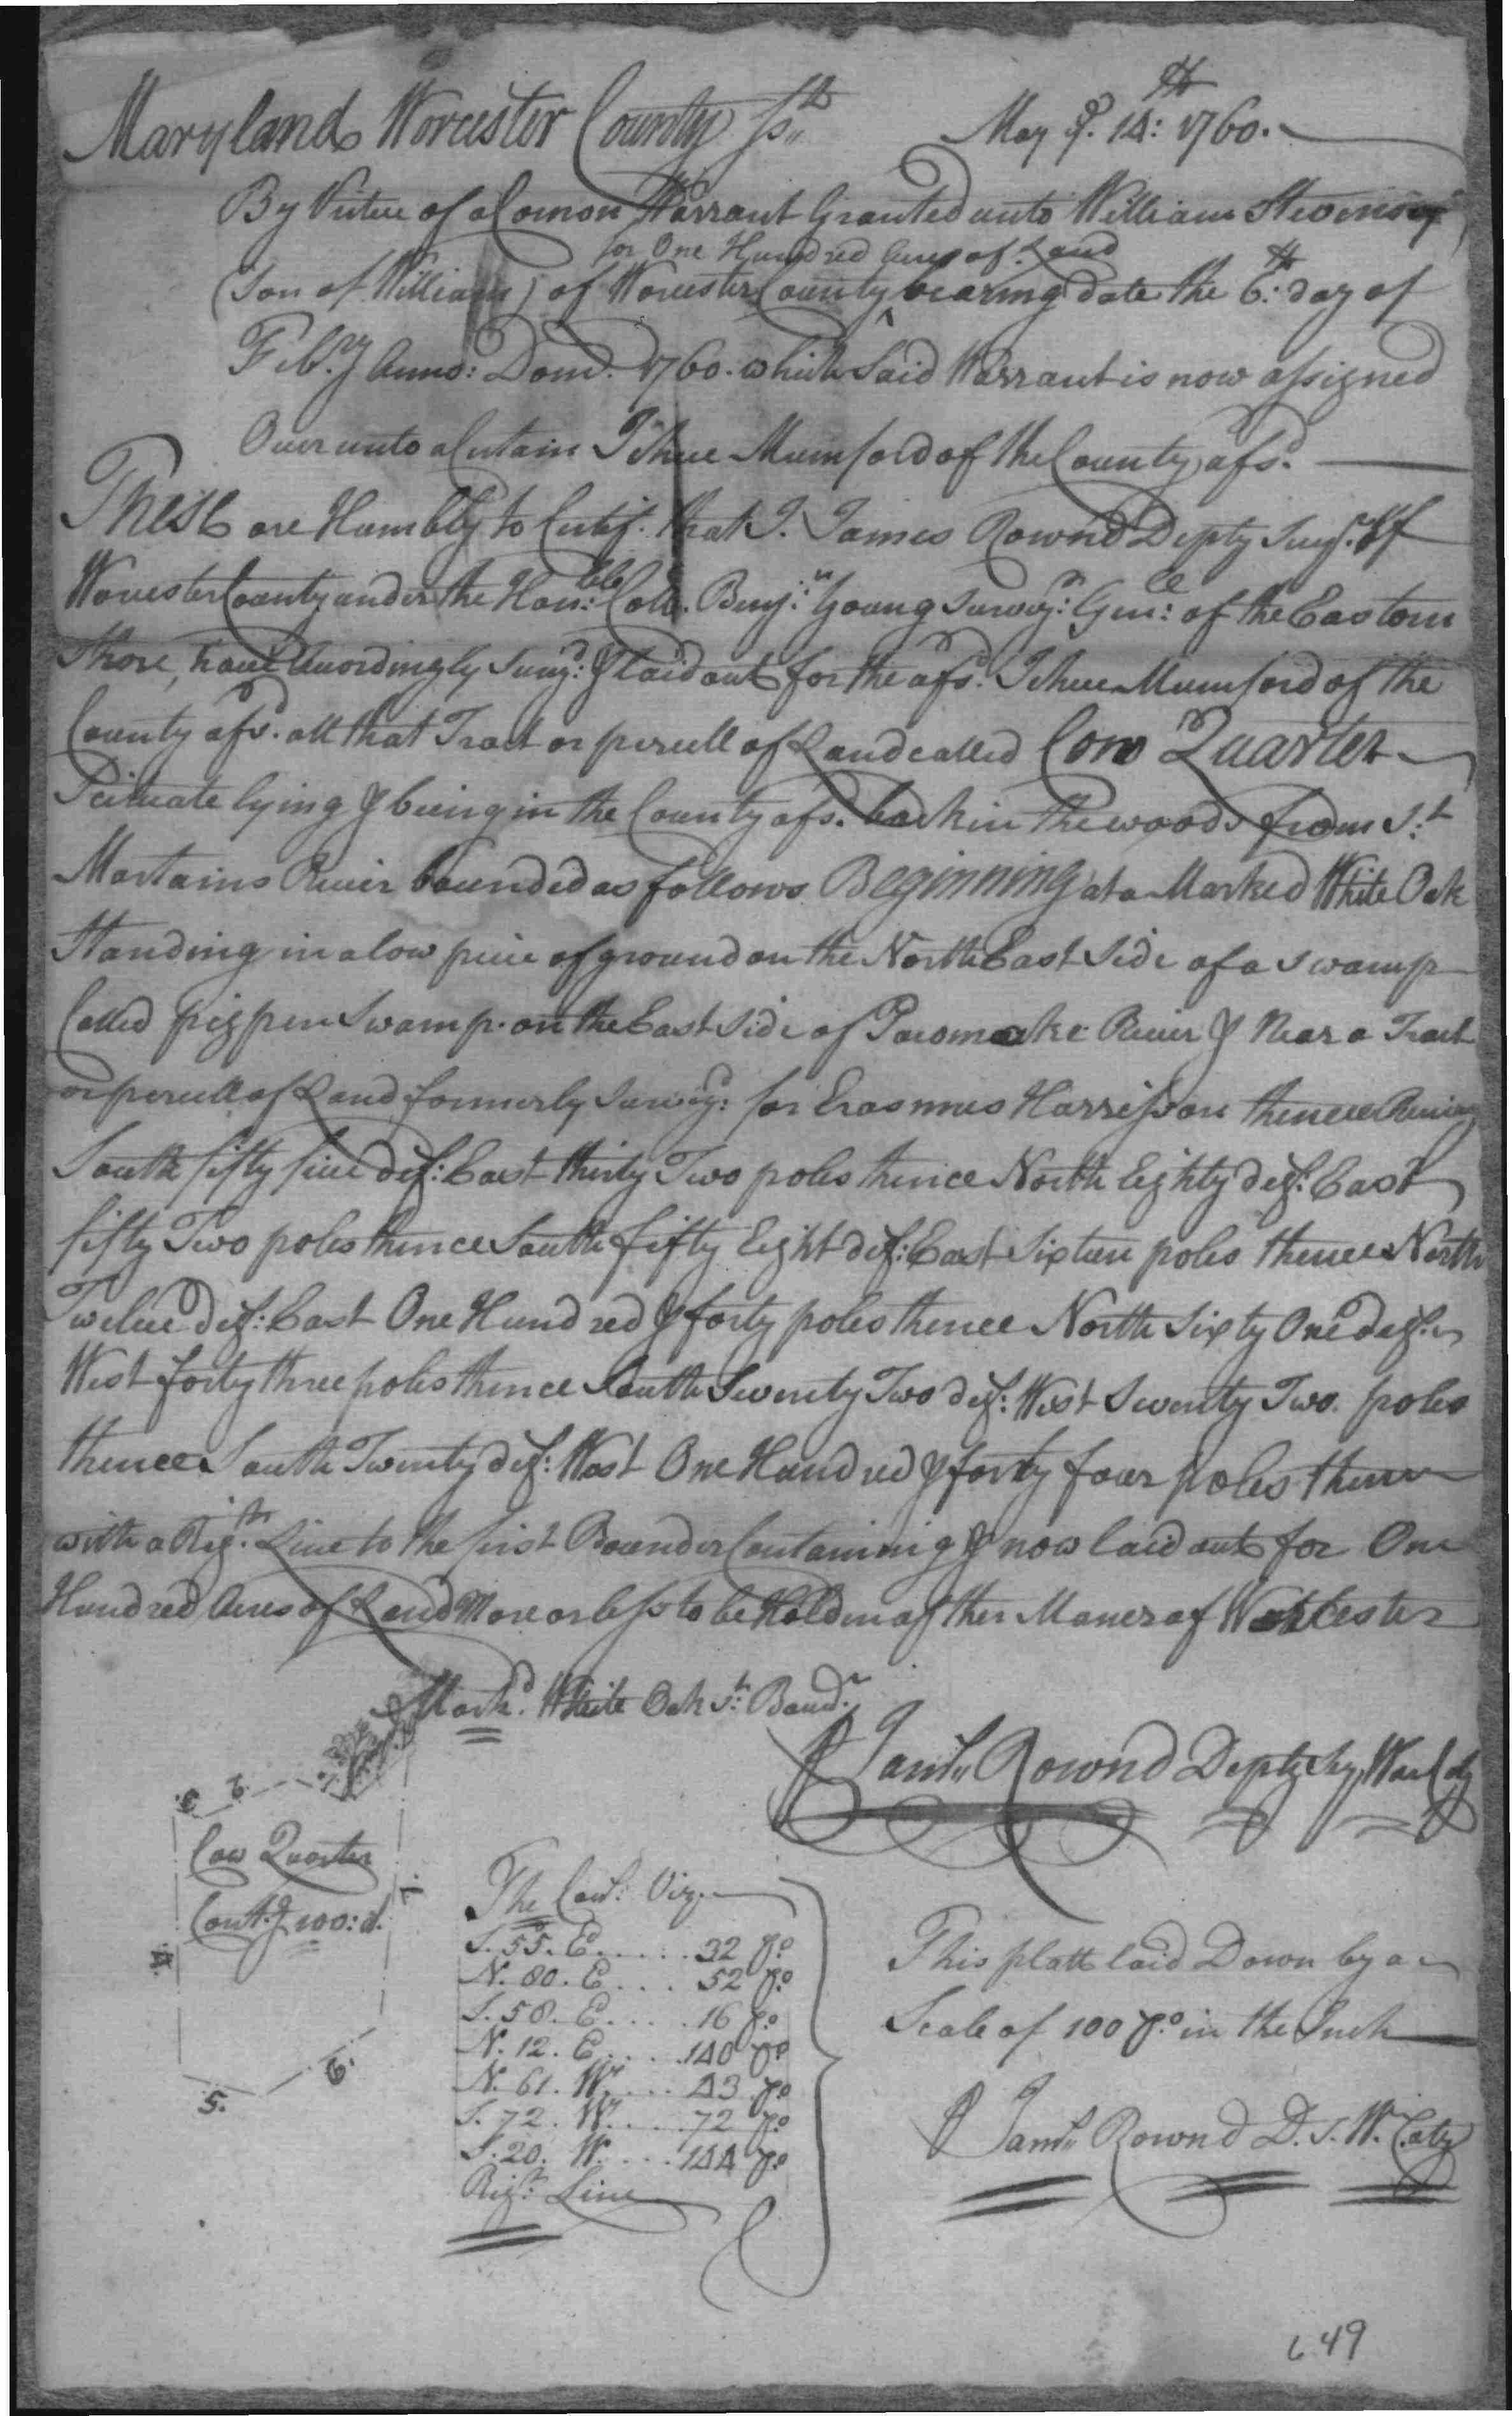 Maryland Worcester County ss.t May ye. 14:th 1760.
By Virtue of a Comon Warrant Granted unto William Stevenson
for One Hundred Acres of Land
(Son of William) of Worcester County ^ bearing date the 6:th day of
Feb.ry Anno: Dom. 1760. which Said Warrant is now assigned
Over unto a Certain Jehue Mumford of the County afsd.
These are Humbly to Certif. that I. James Rownd Depty Surv.r of
Worcester County under the Hon:ble Coll. Benj:n Young Survey:r Gen:ll of the Eastorn
Shore, have Accordingly Surv:d & laid out for the afsd. Jehue Mumford of the
County afsd. all that Tract or percell of Land called Cow Quarter
Scituate lying & being in the County afs. back in the woods from S:t
Martains River bounded as follows Beginning at a Marked White Oak
Standing in a low peice of ground on the North East Side of a swamp
Called pigpen Swamp. on the East Side of Pocomoake River & Near a Tract
or percell of Land formerly Survey:d for Erasmus Harrisson thence Runing
South fifty five deg: East thirty Two poles thence North Eighty deg: East
fifty Two poles thence South fifty Eight deg: East Sixteen poles thence North
Twelve deg: East One Hundred & forty poles thence North Sixty One deg:
West forty three poles thence South Seventy Two deg: West Seventy Two poles
thence South Twenty deg: West One Hundred & forty four poles thence
with a Rig:ht Line to the first Bounder Containing & now laid out for One
Hundred Acres of Land More or less to be Holden of ther Maner of Worcester
Mark.d White Oak 1:st Bound.r
James Rownd Depty Surv Wor Coty
Cow Quarter
Cont.g 100: a.
1
4.
5.
6.
7.
8
The Cou.rs: Viz.
S. 55. E. .... 32 po
N. 80. E .... 52 po
S. 58. E .... 16 po
N. 12. E .... 140 po
N. 61. W. .... 43 po
S. 72. W. .... 72 po
S. 20. W. .... 144 po
Rig:ht Line
This platt laid Down by a
Scale of 100 po. in the Inch
James Rownd D. S. W. Coty
649